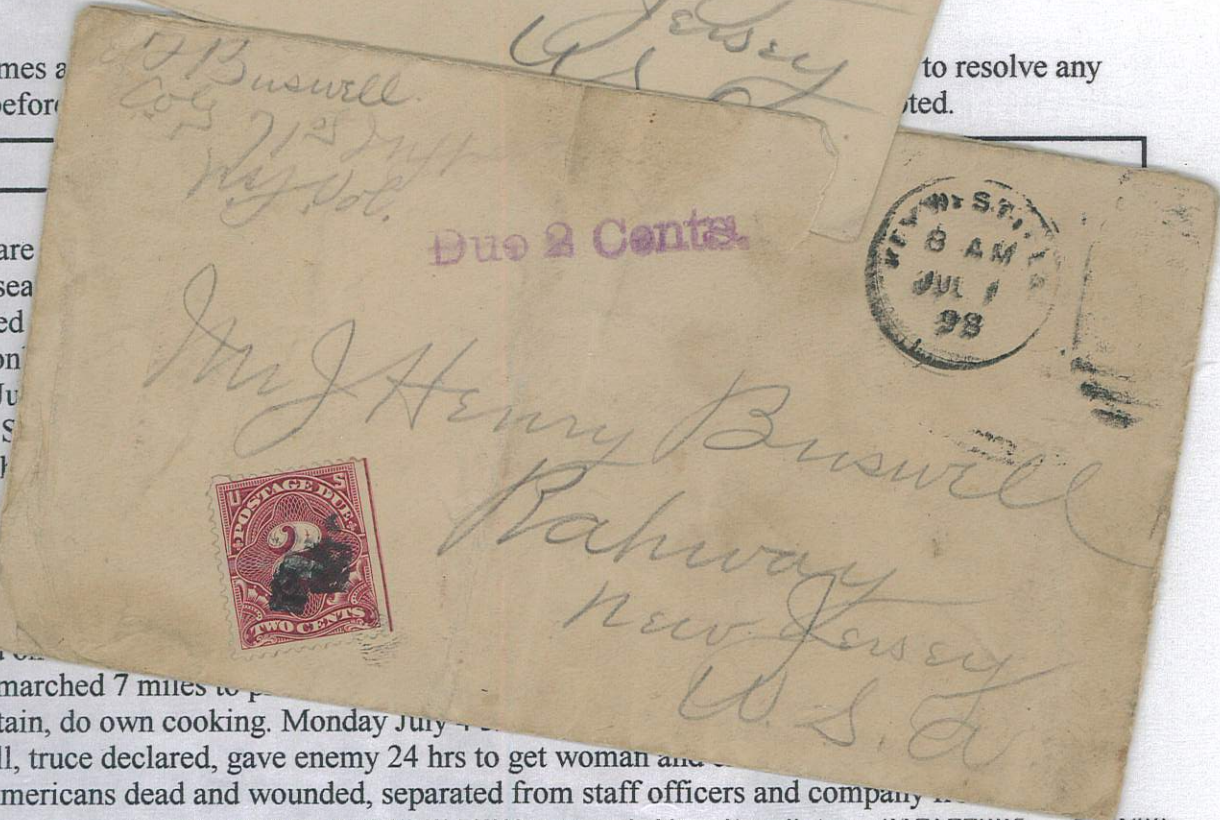 Jersey
U S
mes a
to resolve any
before
oted.
Buswell.
Co
71st
N.Y. Vol.
Due 2 Cents.
KEY W
8 AM
JUL 1
98
Mr J Henry Buswell
Rahway
New Jersey
U. S. A
U S
POSTAGE DUE
2
TWO CENTS
are
sea
ed
on
Ju
S
marched 7 miles to p
tain, do own cooking. Monday July 4
ll, truce declared, gave enemy 24 hrs to get woman and
mericans dead and wounded, separated from staff officers and company